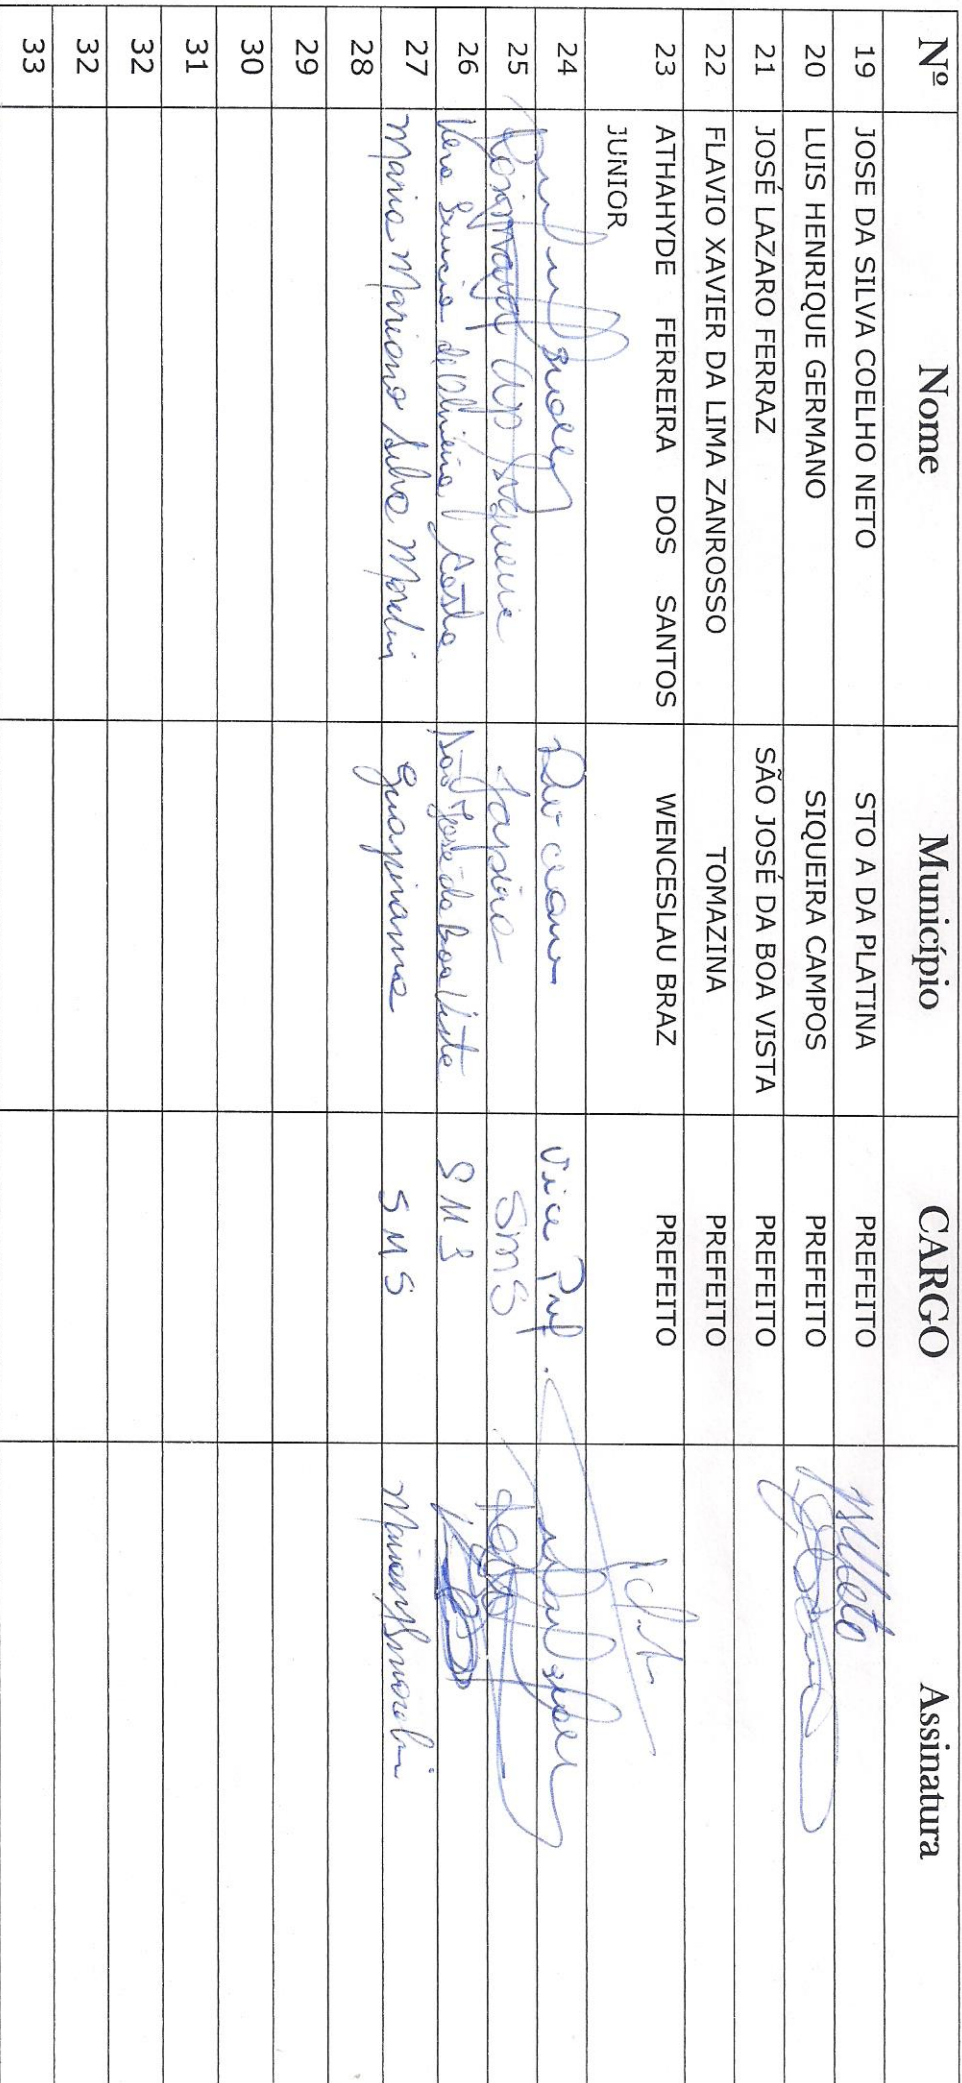 Nº Nome Município CARGO Assinatura
19 JOSE DA SILVA COELHO NETO STO A DA PLATINA PREFEITO
20 LUIS HENRIQUE GERMANO SIQUEIRA CAMPOS PREFEITO
21 JOSÉ LAZARO FERRAZ SÃO JOSÉ DA BOA VISTA PREFEITO
22 FLAVIO XAVIER DA LIMA ZANROSSO TOMAZINA PREFEITO
23 ATHAHYDE FERREIRA DOS SANTOS WENCESLAU BRAZ PREFEITO
JUNIOR
24 Vice Pref.
25 Ap Siqueira Japira SMS
26 Vera Lucia de Oliveira Costa São José da Boa Vista SMS
27 Maria Mariano Silva Guapirama SMS
28
29
30
31
32
32
33